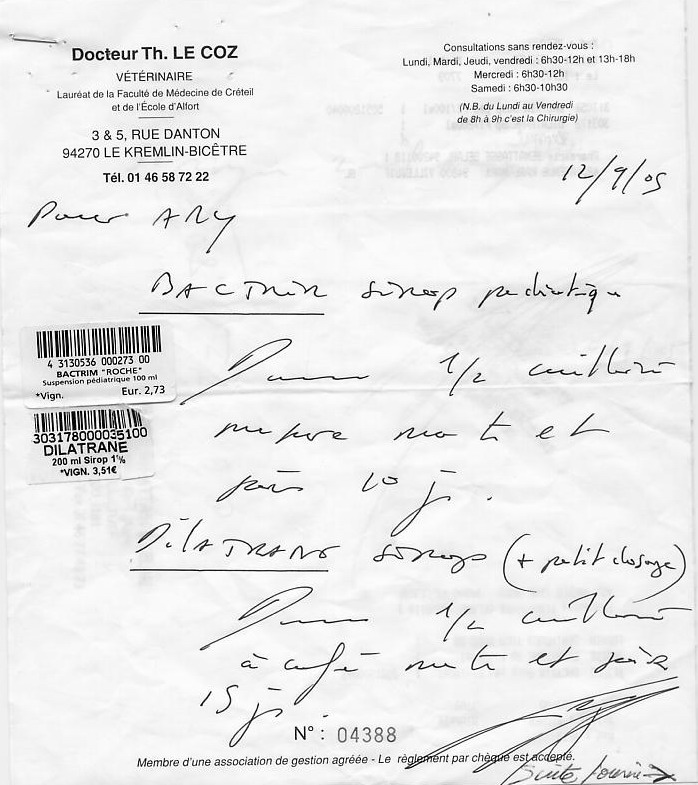 Docteur Th. LE COZ
VÉTÉRINAIRE
Lauréat de la Faculté de Médecine de Créteil
et de l'École d'Alfort
3 & 5, RUE DANTON
94270 LE KREMLIN-BICÊTRE
Tél. 01 46 58 72 22
Consultations sans rendez-vous :
Lundi, Mardi, Jeudi, vendredi : 6h30-12h et 13h-18h
Mercredi : 6h30-12h
Samedi : 6h30-10h30
(N.B. du Lundi au Vendredi
de 8h à 9h c'est la Chirurgie)
12/9/05
Pour ARY
BACTRIM sirop pédiatrique
4 3130536 000273 00
BACTRIM "ROCHE"
Suspension pédiatrique 100 ml
*Vign. Eur. 2,73
1/2 cuillère
matin et
soir 10 j.
303178000035100
DILATRANE
200 ml Sirop 1%
*VIGN. 3,51€
DILATRANE sirop (+ petit dosage)
1/2 cuillère
à café matin et soir
15 j.
N° : 04388
Membre d'une association de gestion agréée - Le règlement par chèque est accepté.